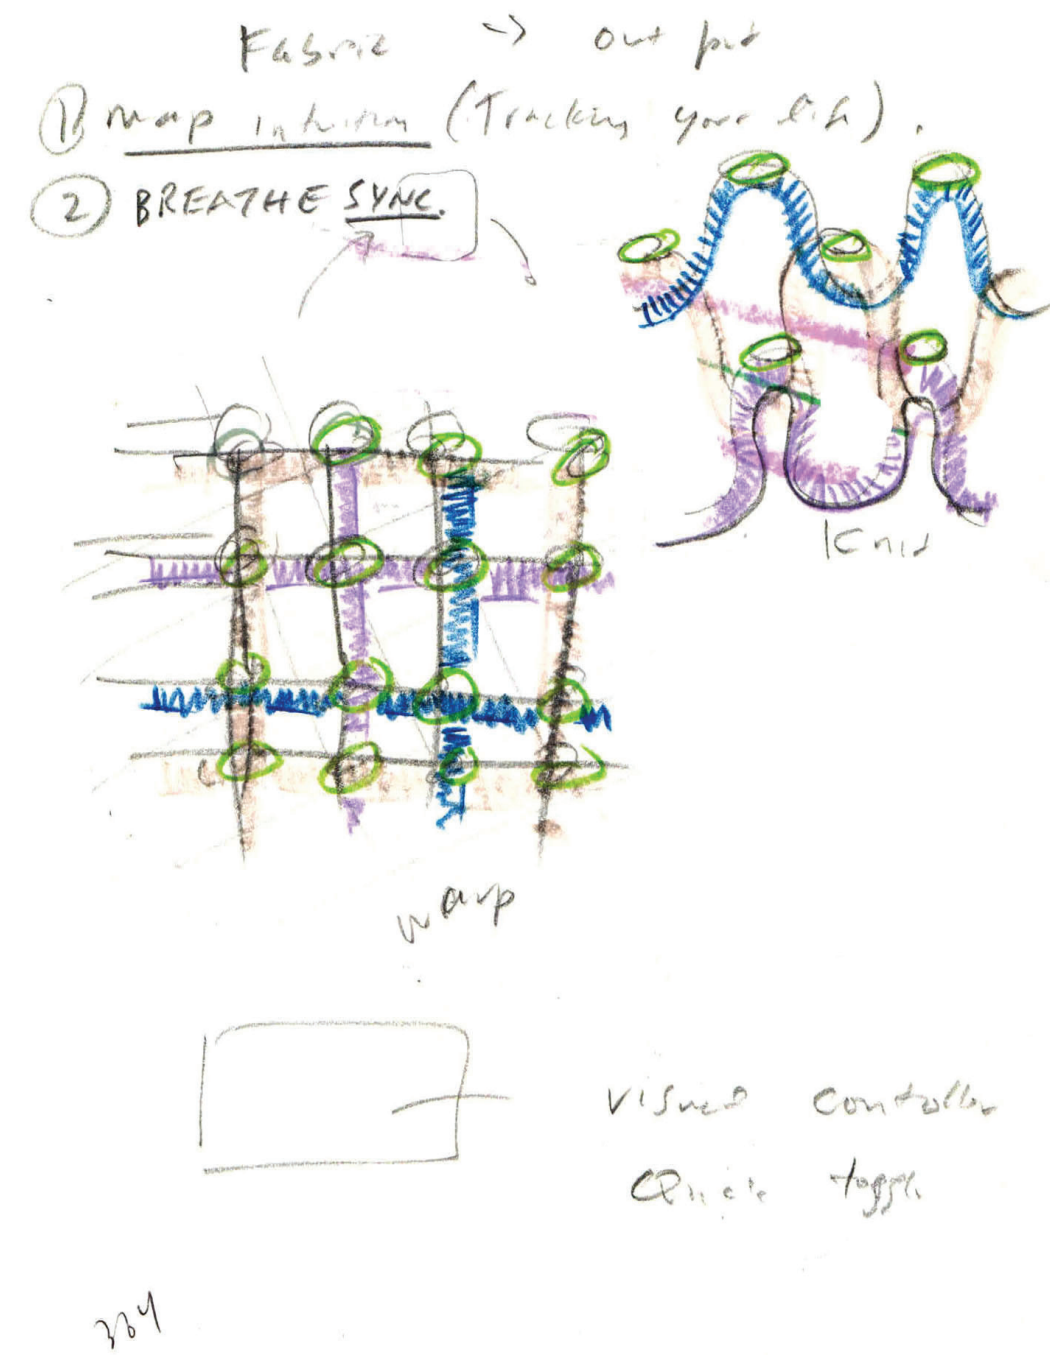 Fabric -> output
① map intuition (Tracking your life).
② BREATHE SYNC.
Knit
warp
visual controller
Quick toggle
334